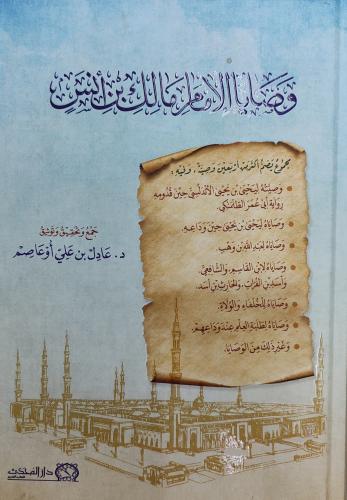 وَصَايَا الإِمَامِ مَالِكِ بْنِ أَنَسٍ
مجموع يضم أكثر من أربعين وصية، وفيه:
- وصيته ليحيى بن يحيى الأندلسي حين قدومه
رواية أبي عمر الطلمنكي
- وصاياه ليحيى بن يحيى حين وداعه.
- وصاياه لعبد الله بن وهب.
- وصاياه لابن القاسم، والشافعي،
وأسد بن الفرات، والحارث بن أسد.
- وصاياه للخلفاء والولاة.
- وصاياه لطلبة العلم عند وداعهم.
- وغير ذلك من الوصايا.
جمع وتحقيق وتوثيق
د. عادل بن علي أوعاصم
دار المحدث